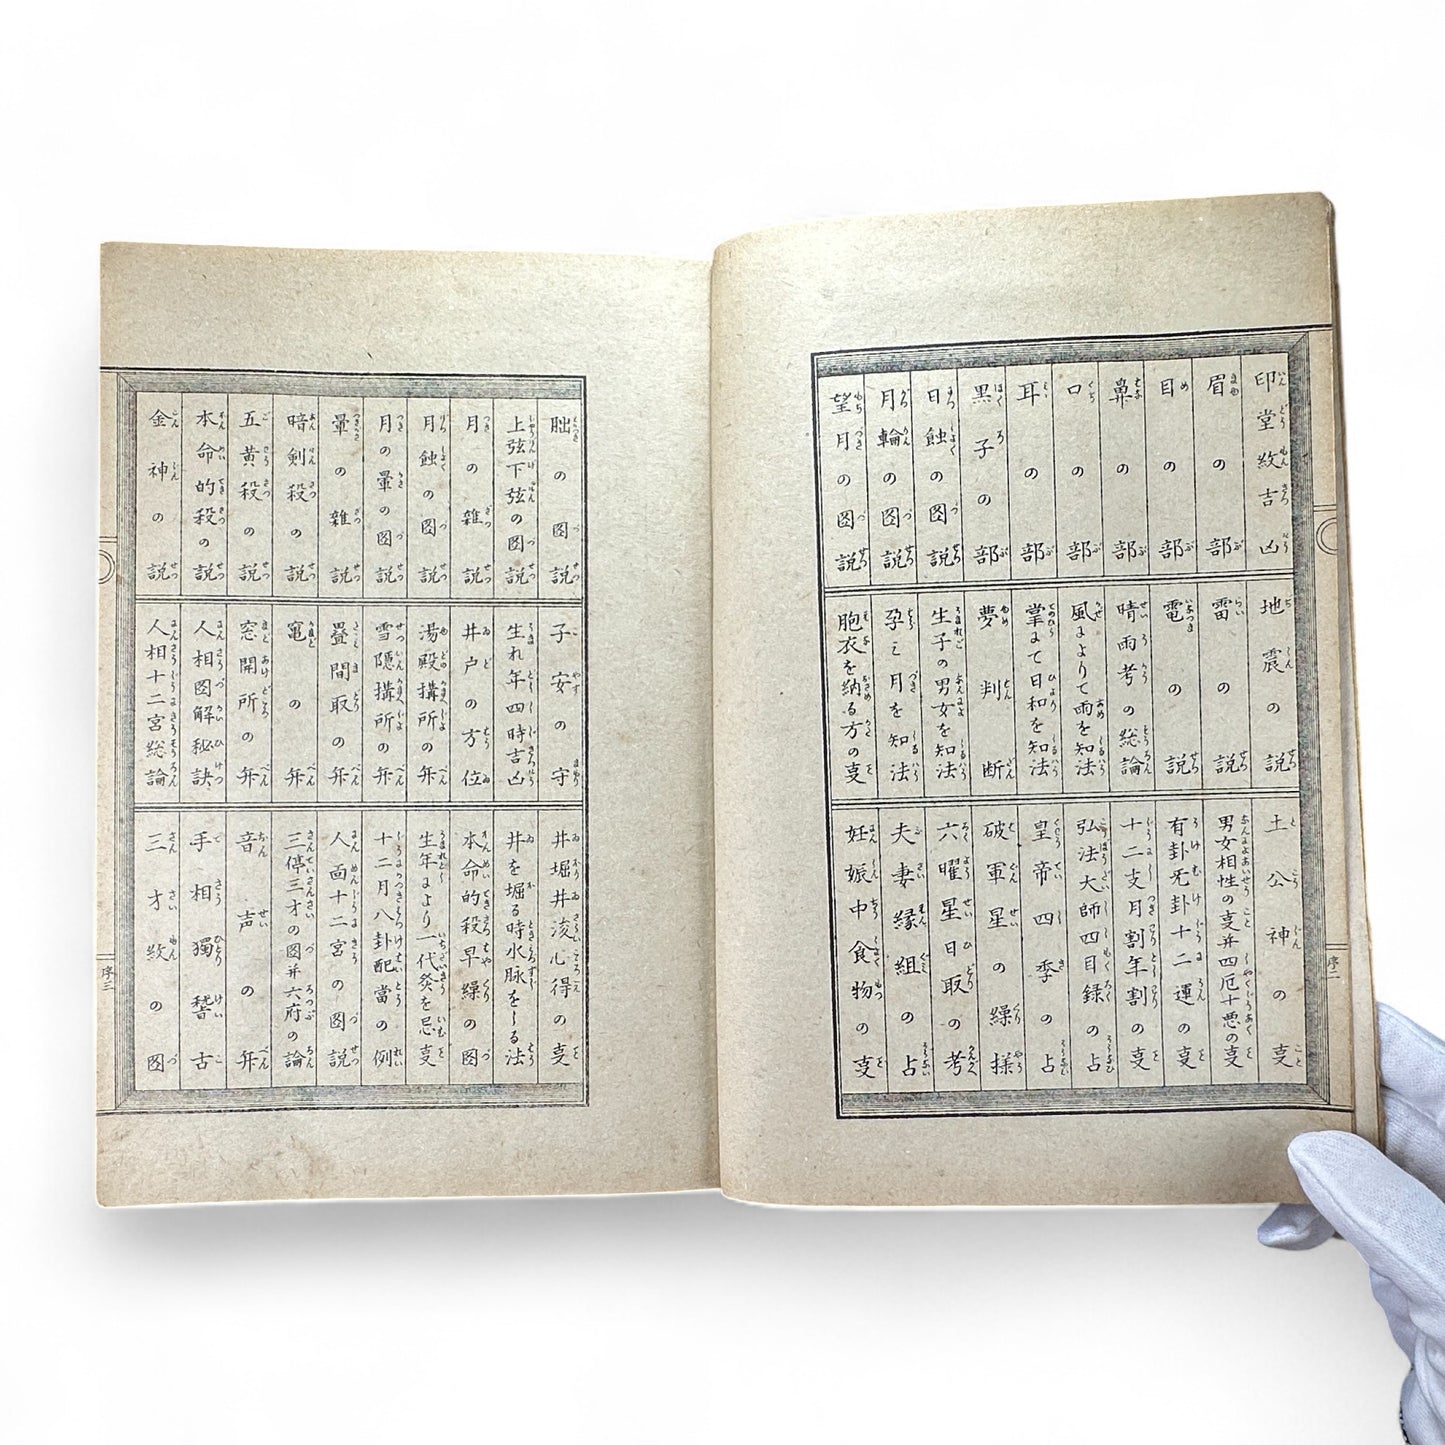 印堂紋吉凶
眉の部
目の部
鼻の部
口の部
耳の部
黒子の部
日蝕の図説
月輪の図説
望月の図説
地震の説
雷の説
電の説
晴雨考の総論
風によりて雨を知法
掌にて日和を知法
夢判断
生子の男女を知法
孕み月を知法
胞衣を納る方の㕝
土公神の㕝
男女相性の㕝并四厄十悪の㕝
有卦旡卦十二運の㕝
十二支月割年割の㕝
弘法大師四目録の占
皇帝四季の占
破軍星の繰様
六曜星日取の考
夫妻縁組の占
妊娠中食物の㕝
序二
朏の図説
上弦下弦の図説
月の雑説
月蝕の図説
月の暈の図説
暈の雑説
暗剣殺の説
五黄殺の説
本命的殺の説
金神の説
子安の守
生れ年四時吉凶
井戸の方位
湯殿搆所の弁
雪隠搆所の弁
畳間取の弁
竃の弁
窓開所の弁
人相図解秘訣
人相十二宮総論
井堀井浚心得の㕝
井を堀る時水脉をしる法
本命的殺早繰の図
生年により一代灸を忌㕝
十二月八卦配當の例
人面十二宮の図説
三停三才の図并六府の論
音声の弁
手相獨稽古
三才紋の図
序三